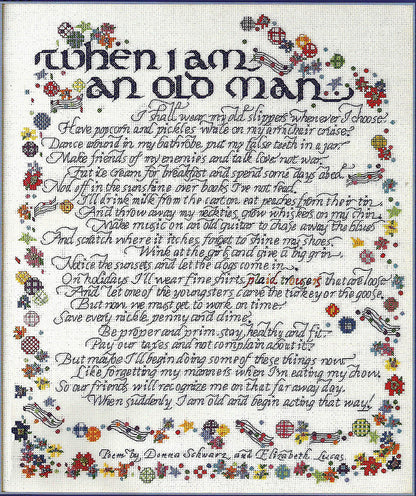 When I am
an old man
I shall wear my old slippers whenever I choose
Have popcorn and pickles while on my armchair cruise.
Dance around in my bathrobe, put my false teeth in a jar
Make friends of my enemies and talk love not war.
Eat ice cream for breakfast and spend some days abed
Nod off in the sunshine over books I've not read.
I'll drink milk from the carton eat peaches from their tin
And throw away my neckties, grow whiskers on my chin.
Make music on an old guitar to chase away the blues
And scratch where it itches, forget to shine my shoes.
Wink at the girls and give a big grin
Notice the sunsets and let the dogs come in.
On holidays I'll wear fine shirts, plaid trousers that are loose
And let one of the youngsters carve the turkey or the goose.
But now we must get to work on time
Save every nickle, penny and dime,
Be proper and prim, stay healthy and fit
Pay our taxes and not complain about it.
But maybe I'll begin doing some of these things now
Like forgetting my manners when I'm eating my chow,
So our friends will recognize me on that far away day.
When suddenly I am old and begin acting that way!
Poem by Donna Schwarz and Elizabeth Lucas